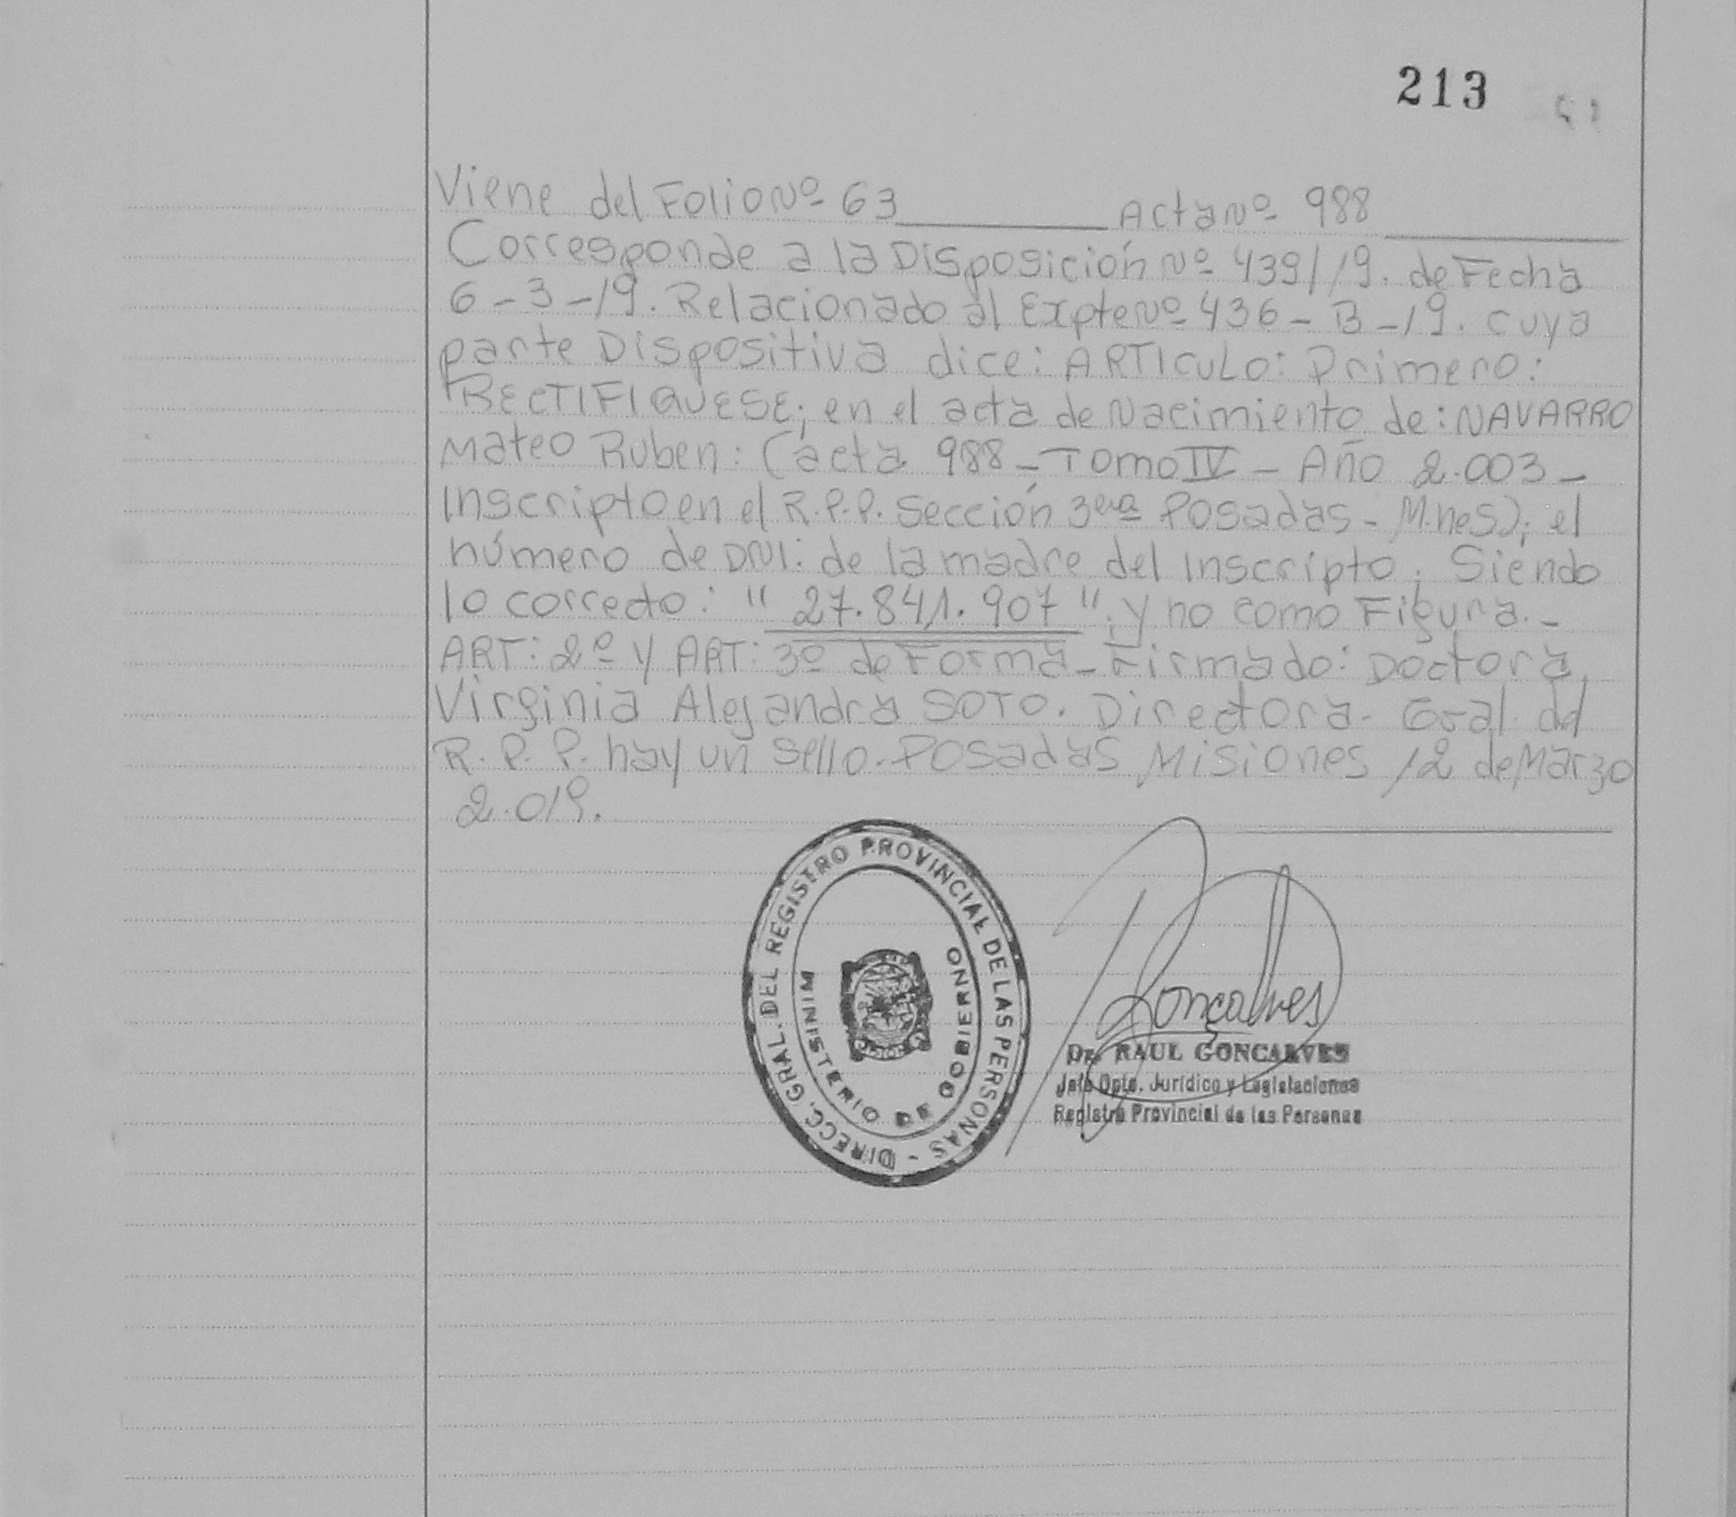 213
Viene del Folio Nº 63 Acta Nº 988
Corresponde a la Disposición Nº 439/19. de Fecha
6-3-19. Relacionado al Expte Nº 436-B-19. cuya
parte Dispositiva dice: ARTICULO: Primero:
RECTIFIQUESE; en el acta de Nacimiento de: NAVARRO
Mateo Ruben: (acta 988-Tomo IV - Año 2.003-
Inscripto en el R.P.P. Sección 3era Posadas-M.nes); el
número de DNI: de la madre del Inscripto; Siendo
lo correcto: "27.841.907"; y no como Figura.-
ART: 2º y ART: 3º de Forma-Firmado: Doctora
Virginia Alejandra SOTO. Directora- Gral del
R.P.P. hay un sello.-Posadas Misiones 12 de Marzo
2.019.
DIRECC. GRAL. DEL REGISTRO PROVINCIAL DE LAS PERSONAS -
MINISTERIO DE GOBIERNO
Gonçalves
Dr. RAUL GONCALVES
Jefe Dpto. Jurídico y Legislaciones
Registro Provincial de las Personas